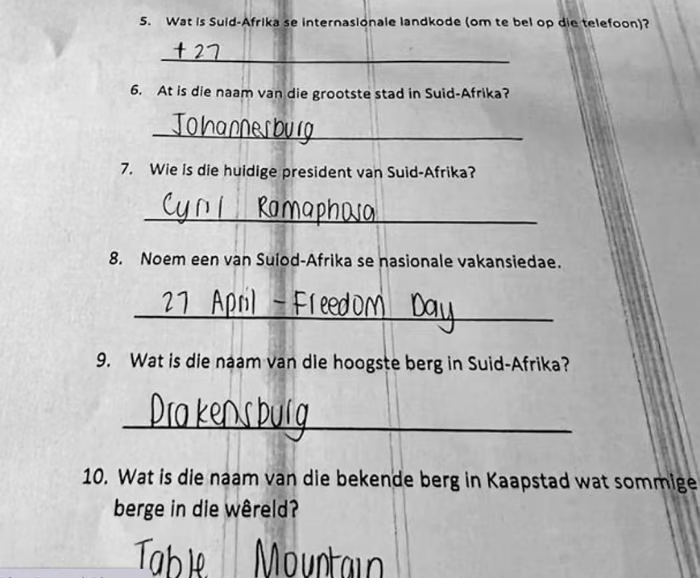 5. Wat is Suid-Afrika se internasionale landkode (om te bel op die telefoon)?
+27
6. At is die naam van die grootste stad in Suid-Afrika?
Johannesburg
7. Wie is die huidige president van Suid-Afrika?
Cyril Ramaphosa
8. Noem een van Suiod-Afrika se nasionale vakansiedae.
27 April - Freedom Day
9. Wat is die naam van die hoogste berg in Suid-Afrika?
Drakensburg
10. Wat is die naam van die bekende berg in Kaapstad wat sommige
berge in die wêreld?
Table Mountain